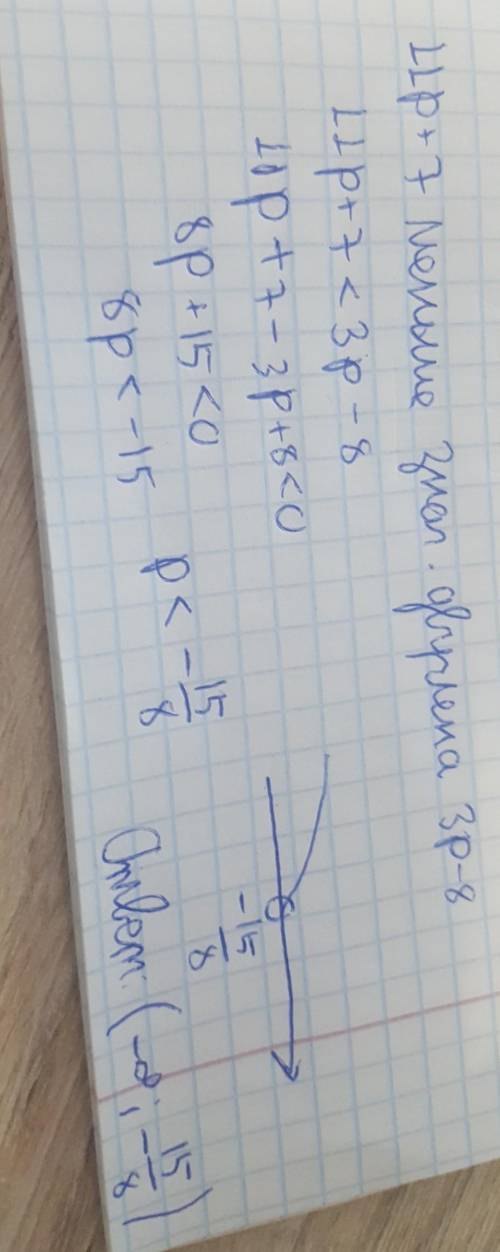 11p + 7 меньше знач. двучлена 3p - 8
11p + 7 < 3p - 8
11p + 7 - 3p + 8 < 0
8p + 15 < 0
8p < -15   p < -15/8
-15/8
Ответ: (-∞; -15/8)